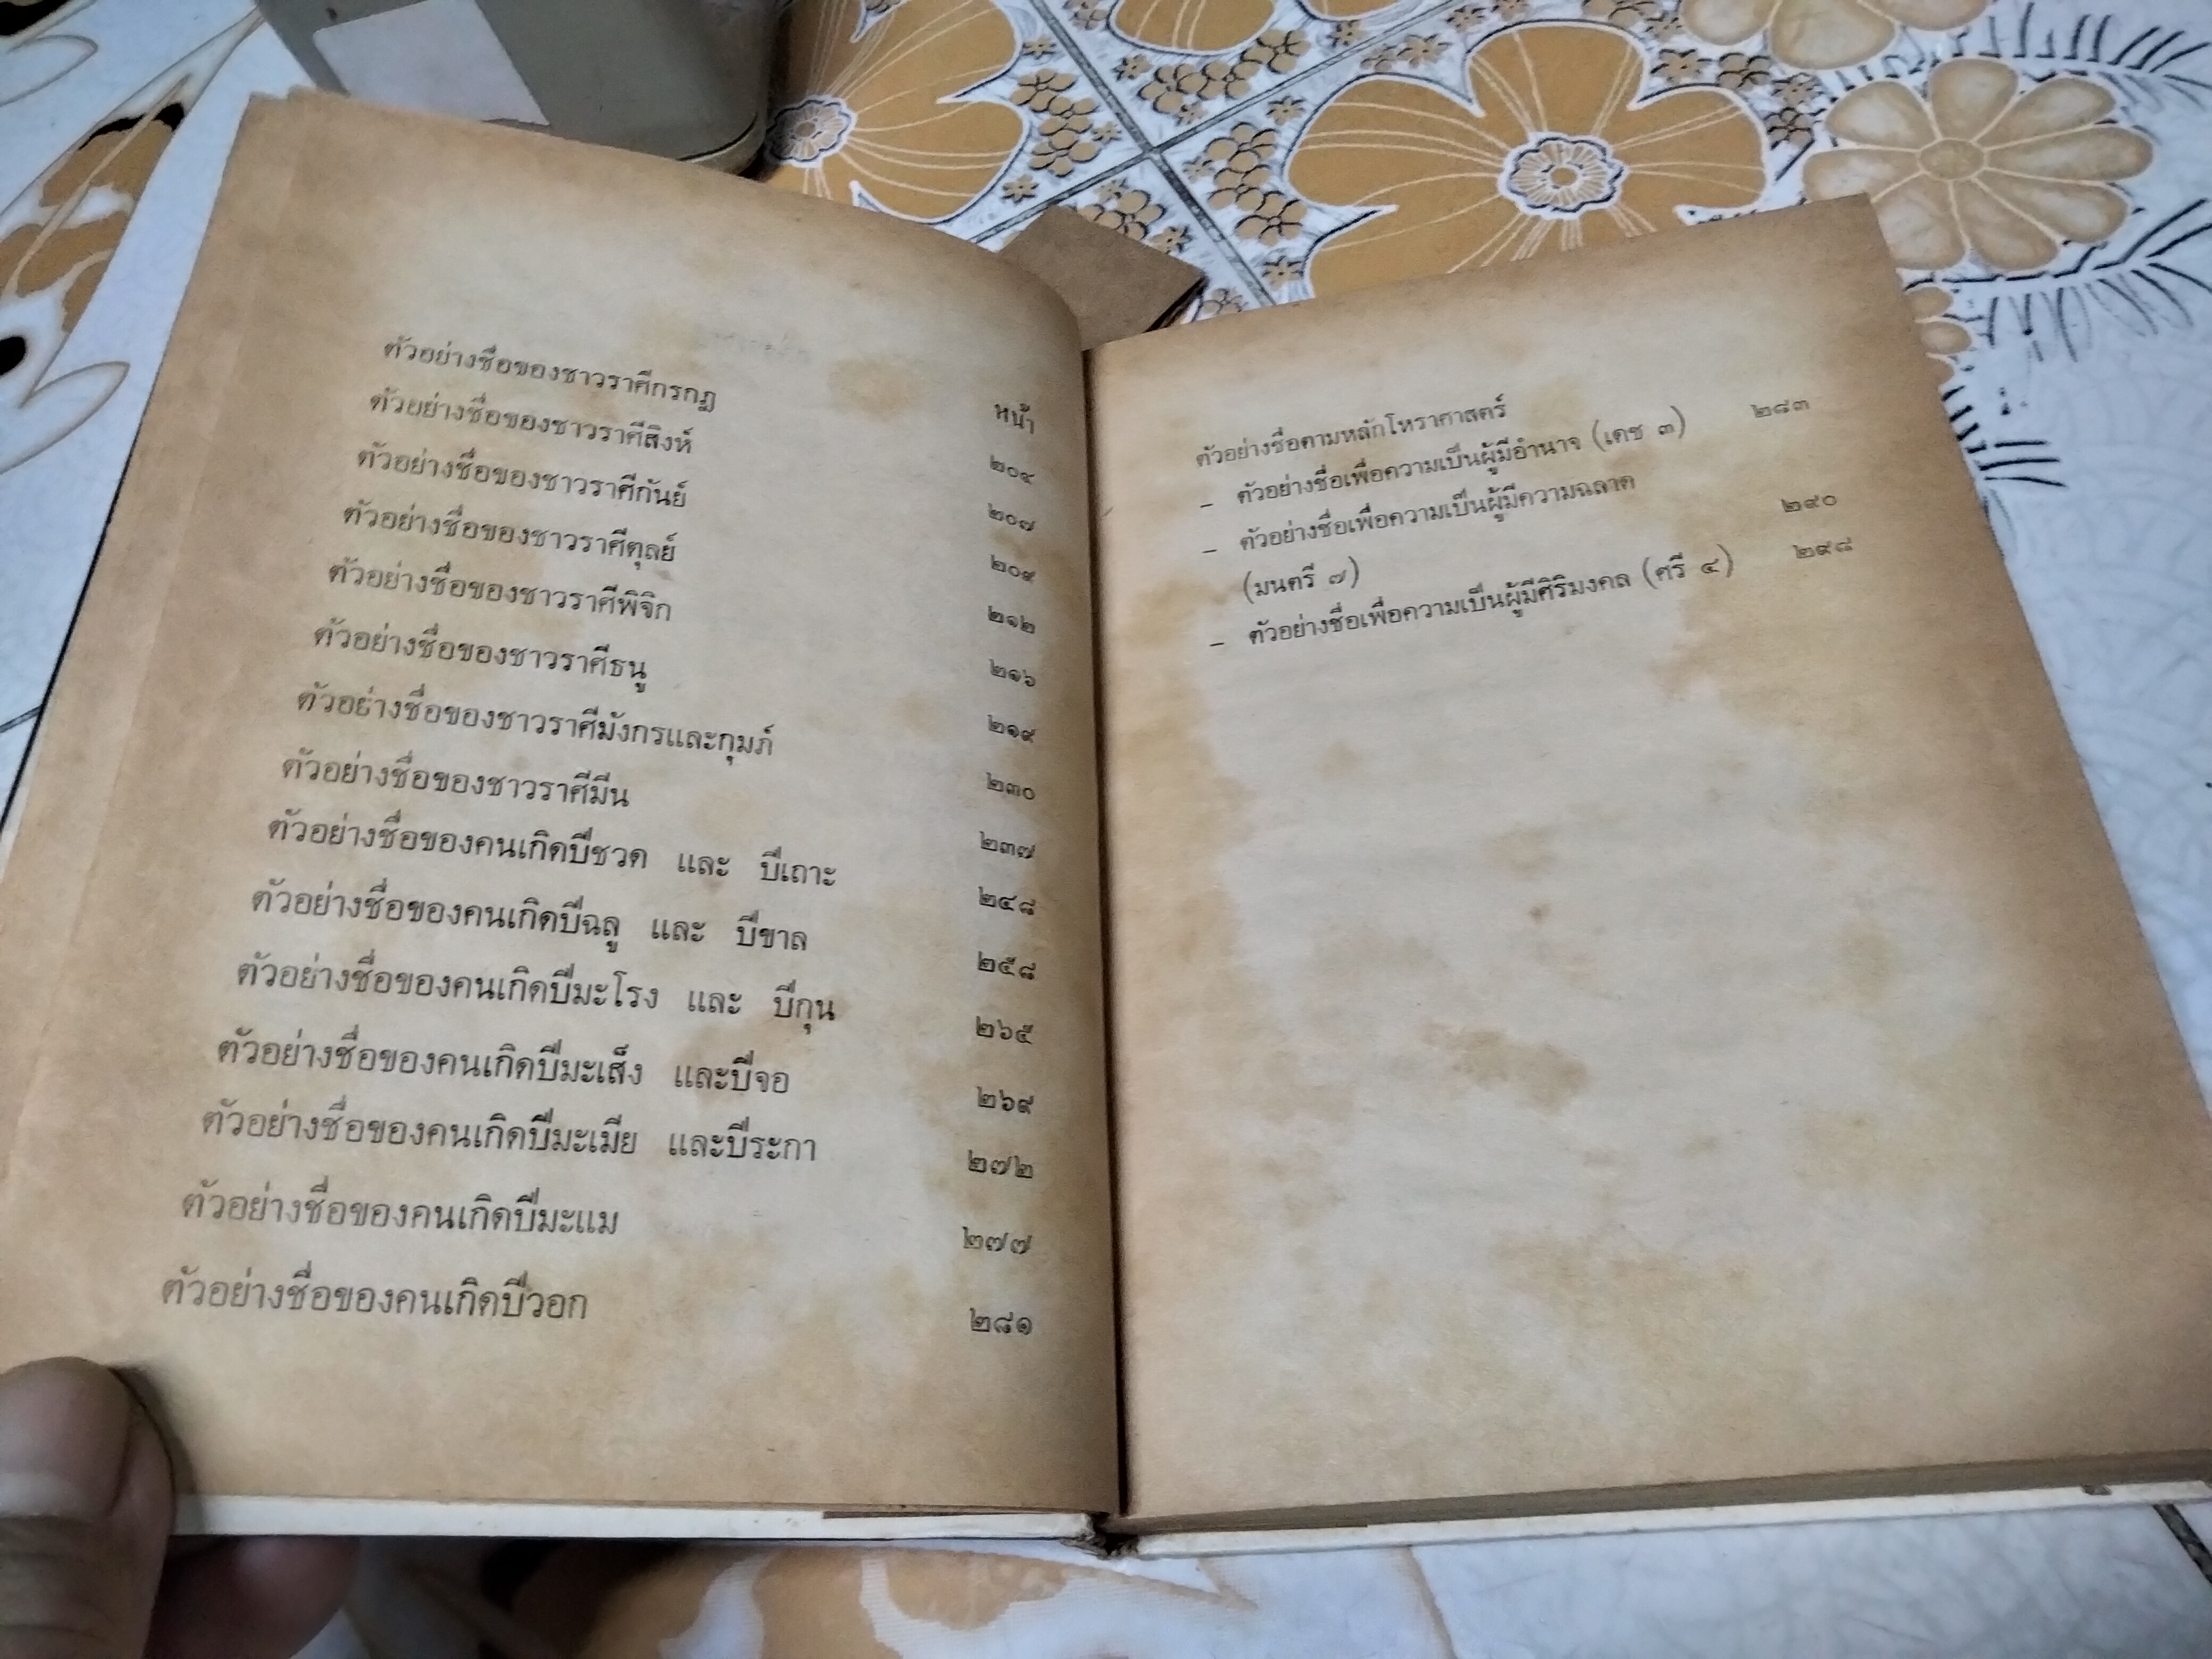 หน้า
ตัวอย่างชื่อของชาวราศีกรกฎ ๒๐๔
ตัวอย่างชื่อของชาวราศีสิงห์ ๒๐๗
ตัวอย่างชื่อของชาวราศีกันย์ ๒๐๙
ตัวอย่างชื่อของชาวราศีตุลย์ ๒๑๒
ตัวอย่างชื่อของชาวราศีพิจิก ๒๑๖
ตัวอย่างชื่อของชาวราศีธนู ๒๑๙
ตัวอย่างชื่อของชาวราศีมังกรและกุมภ์ ๒๓๐
ตัวอย่างชื่อของชาวราศีมีน ๒๓๗
ตัวอย่างชื่อของคนเกิดปีชวด และ ปีเถาะ ๒๔๘
ตัวอย่างชื่อของคนเกิดปีฉลู และ ปีขาล ๒๕๘
ตัวอย่างชื่อของคนเกิดปีมะโรง และ ปีกุน ๒๖๕
ตัวอย่างชื่อของคนเกิดปีมะเส็ง และปีจอ ๒๖๙
ตัวอย่างชื่อของคนเกิดปีมะเมีย และปีระกา ๒๗๒
ตัวอย่างชื่อของคนเกิดปีมะแม ๒๗๗
ตัวอย่างชื่อของคนเกิดปีวอก ๒๘๑
ตัวอย่างชื่อตามหลักโหราศาสตร์
– ตัวอย่างชื่อเพื่อความเป็นผู้มีอำนาจ (เดช ๓) ๒๘๓
– ตัวอย่างชื่อเพื่อความเป็นผู้มีความฉลาด
(มนตรี ๗) ๒๙๐
– ตัวอย่างชื่อเพื่อความเป็นผู้มีศิริมงคล (ศรี ๔) ๒๙๘